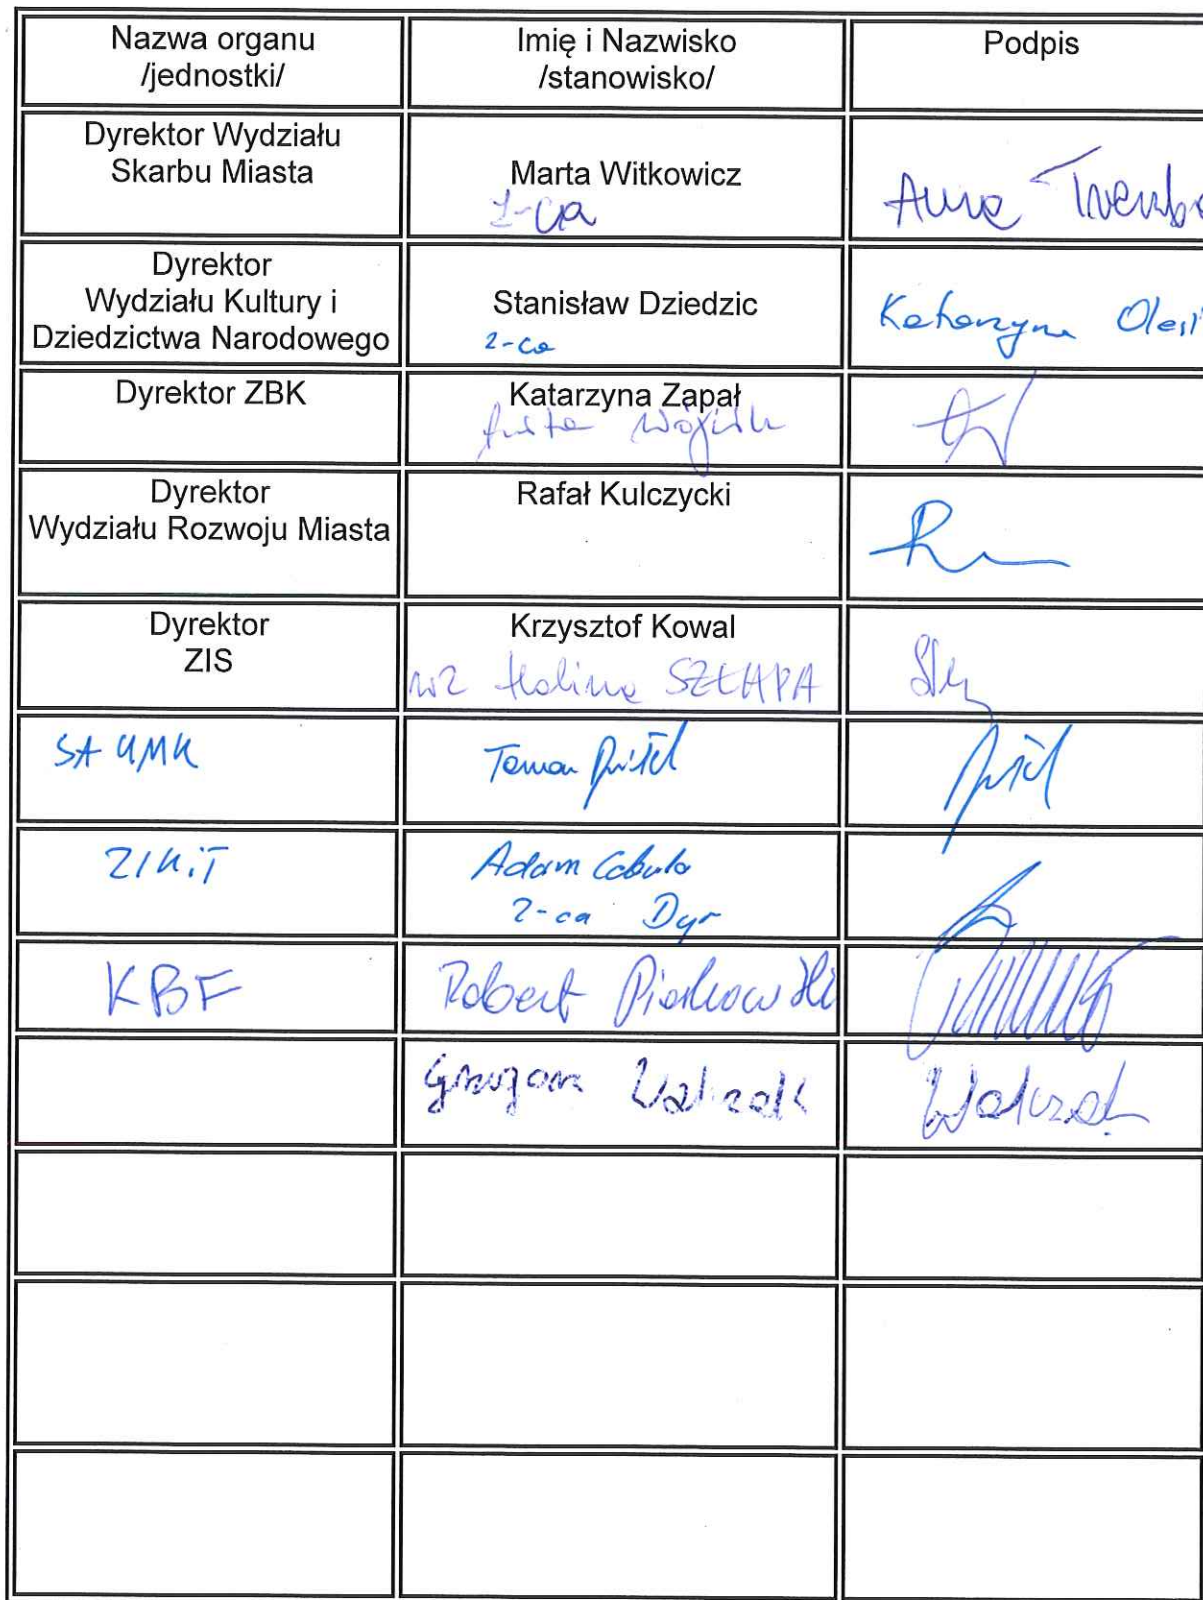 Nazwa organu
/jednostki/
Imię i Nazwisko
/stanowisko/
Podpis
Dyrektor Wydziału
Skarbu Miasta
Marta Witkowicz
z-ca
Anna
Dyrektor
Wydziału Kultury i
Dziedzictwa Narodowego
Stanisław Dziedzic
z-ca
Katarzyna
Dyrektor ZBK
Katarzyna Zapał
Dyrektor
Wydziału Rozwoju Miasta
Rafał Kulczycki
Dyrektor
ZIS
Krzysztof Kowal
wz Halina SZŁAPA
SA UMK
ZIKiT
Adam
z-ca Dyr
KBF
Robert Piaskowski
Grzegorz Walczak
Walczak